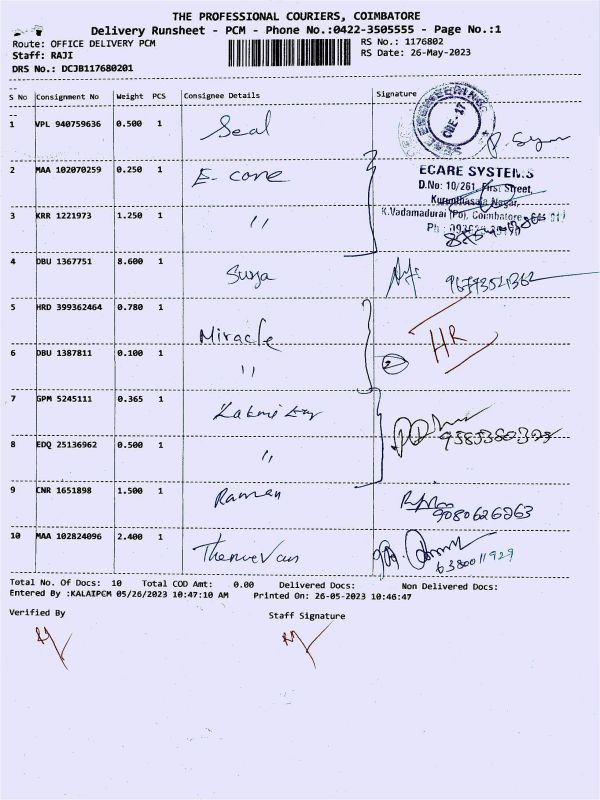 THE PROFESSIONAL COURIERS, COIMBATORE
Delivery Runsheet - PCM - Phone No.:0422-3505555 - Page No.:1
Route: OFFICE DELIVERY PCM
RS No.: 1176802
Staff: RAJI
RS Date: 26-May-2023
DRS No.: DCJB117680201
S No Consignment No Weight PCS Consignee Details Signature
1 VPL 940759636 0.500 1 Seal
CBE-17
2 MAA 102070259 0.250 1 E-care
ECARE SYSTEMS
D.No: 10/261, First Street,
Nagar,
K.Vadamadurai (Po), Coimbatore
3 KRR 1221973 1.250 1 "
Ph
4 DBU 1367751 8.600 1 Surya
5 HRD 399362464 0.780 1 Miracle
HR
6 DBU 1387811 0.100 1 "
2
7 GPM 5245111 0.365 1
8 EDQ 25136962 0.500 1 "
9 CNR 1651898 1.500 1 Raman
9080626263
10 MAA 102824096 2.400 1
6380011929
Total No. Of Docs: 10 Total COD Amt: 0.00 Delivered Docs: Non Delivered Docs:
Entered By :KALAIPCM 05/26/2023 10:47:10 AM Printed On: 26-05-2023 10:46:47
Verified By Staff Signature